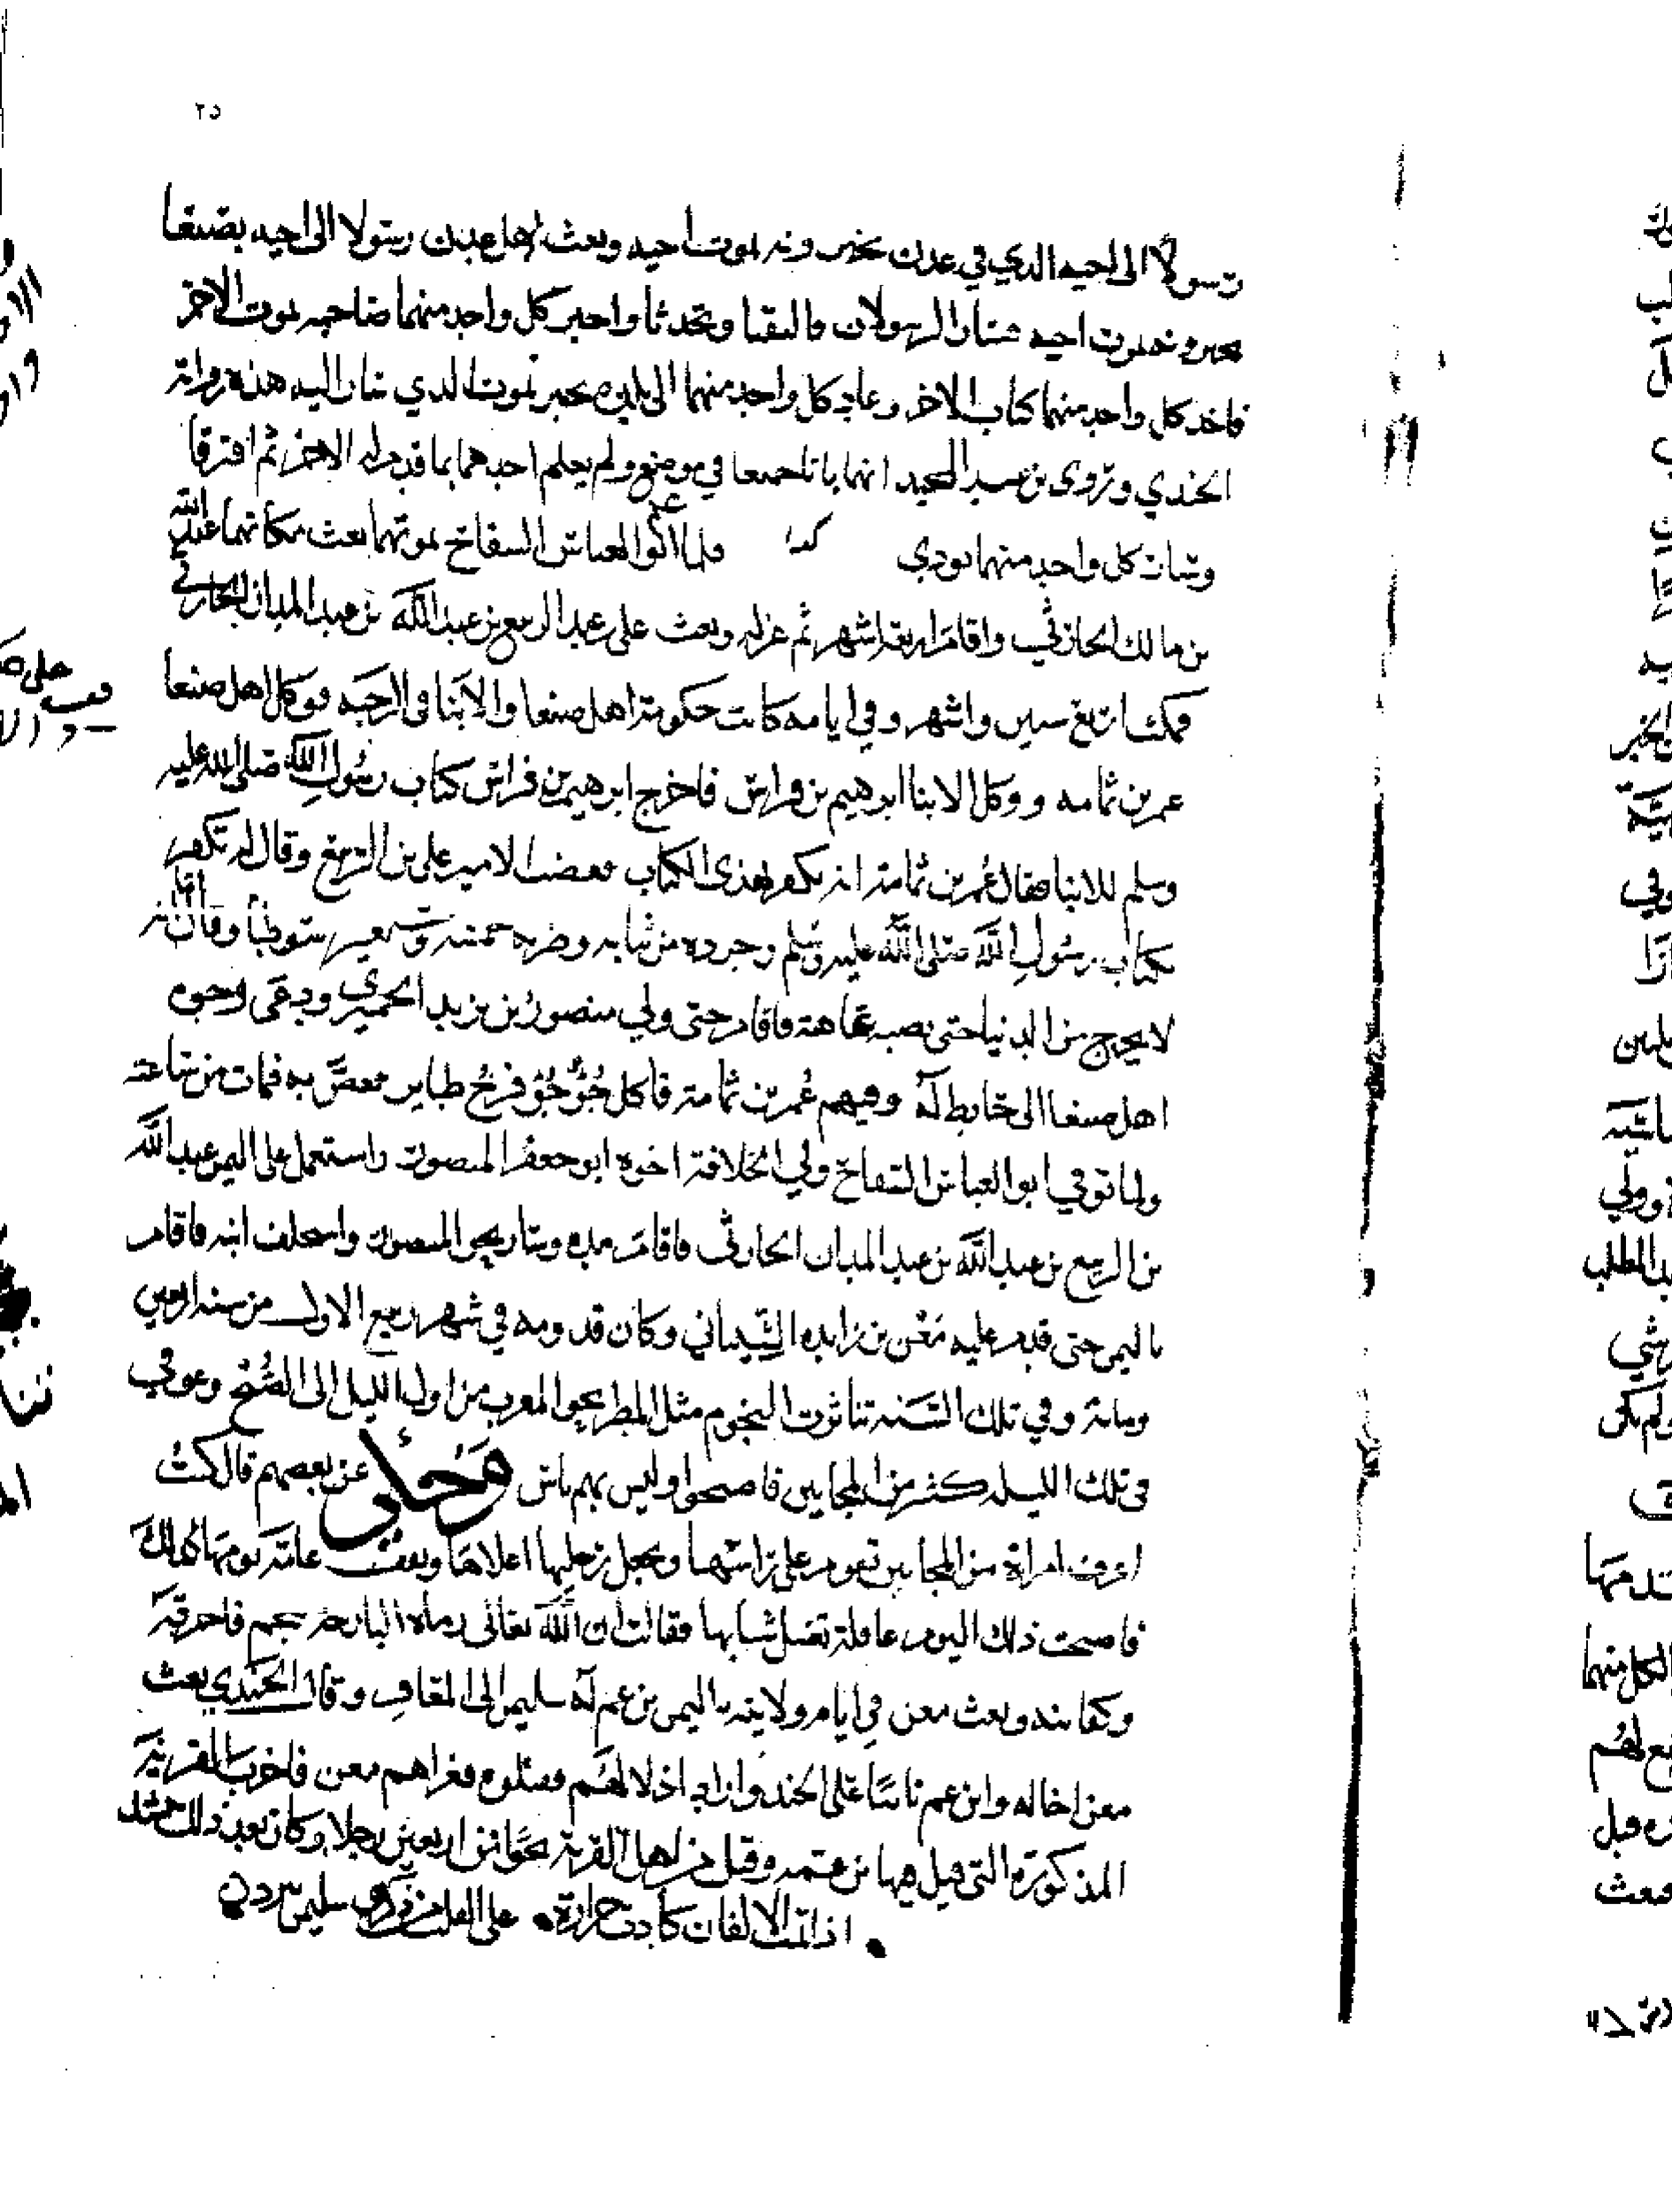 ٢٥
رسولا الى اخيه الذي في عدن يخبرونه بموت اخيه وبعث اهل عدن رسولا الى اخيه بصنعا
يخبرونه بموت اخيه فسار الرسولان فالتقيا وتحدثا واخبر كل واحد منهما صاحبه بموت الاخر
فاخذ كل واحد منهما كتاب الاخر وعاد كل واحد منهما الى بلده يخبر بموت الذي سار اليه هذه رواية
الجندي وروى بن عبد المجيد انهما باتا جميعا في موضع ولم يعلم احدهما بما قدم له الاخر ثم افترقا
وسار كل واحد منهما يودي كذا فلما علم ابو العباس السفاح بموتهما بعث مكانهما عبد الله
بن مالك الحارثي واقام اربعة اشهر ثم عزله وبعث علي بن الربيع بن عبد الله بن عبد المدان الحارثي
فمكث اربع سنين واشهر وفي ايامه كانت حكومة اهل صنعا والابنا في الرحبه فوكل اهل صنعا
عمر بن ثمامه ووكل الابنا ابرهيم بن فراش فاخرج ابرهيم بن فراش كتاب رسول الله صلى الله عليه
وسلم للابنا فقال عمر بن ثمامة انه يكفر بهذى الكتاب فغضب الامير علي بن الربيع وقال له تكفر
بكتاب رسول الله صلى الله عليه وسلم وجرده من ثيابه وضربه خمسة وسبعين سوطا وقال انه
لا يخرج من الدنيا حتى يصبه عاهة فاقام حتى ولي منصور بن يزيد الحميري ودعى وجوه
اهل صنعا الى حايط له وفيهم عمر بن ثمامة فاكل جؤجؤ فرخ طاير فغص به فمات من ساعته
ولما توفي ابو العباس السفاح ولي الخلافة اخوه ابو جعفر المنصور واستعمل على اليمن عبد الله
بن الربيع بن عبد الله بن عبد المدان الحارثي فاقام مده وسار نحو المنصور واستخلف ابنه فاقام
باليمن حتى قدم عليه معن بن زايده الشيباني وكان قدومه في شهر ربيع الاول من سنه اربعين
ومائة وفي تلك السنه تناثرت النجوم مثل المطر نحو المغرب من اول الليل الى الصبح وعوفي
في تلك الليله كثير من المجانين فاصبحوا وليس بهم باس وحكي عن بعضهم قال كنت
اعرف امراة من المجانين تقوم على راسها وتجعل رجليها اعلاها وتقف عامة يومها كذلك
فاصبحت ذلك اليوم عاقلة تغسل ثيابها فقالت ان الله تعالى رماه البارحة بنجم فاحرقه
وكفا منه وبعث معن في ايام ولايته باليمن بن عم له سليم الى المعافر وقال الجندي بعث
معن اخا له وابن عم نائبا على الجند واراد اذلالهم فقتلوه فغزاهم معن فاخرب القرية
المذكورة التي قتل فيها بن عمه وقتل من اهل القرية نحوا من اربعين رجلا وكان بعد ذلك ينشد
اذا تمت الالفان كادت حرارة • على القلب من ذكرى سليمى تردن